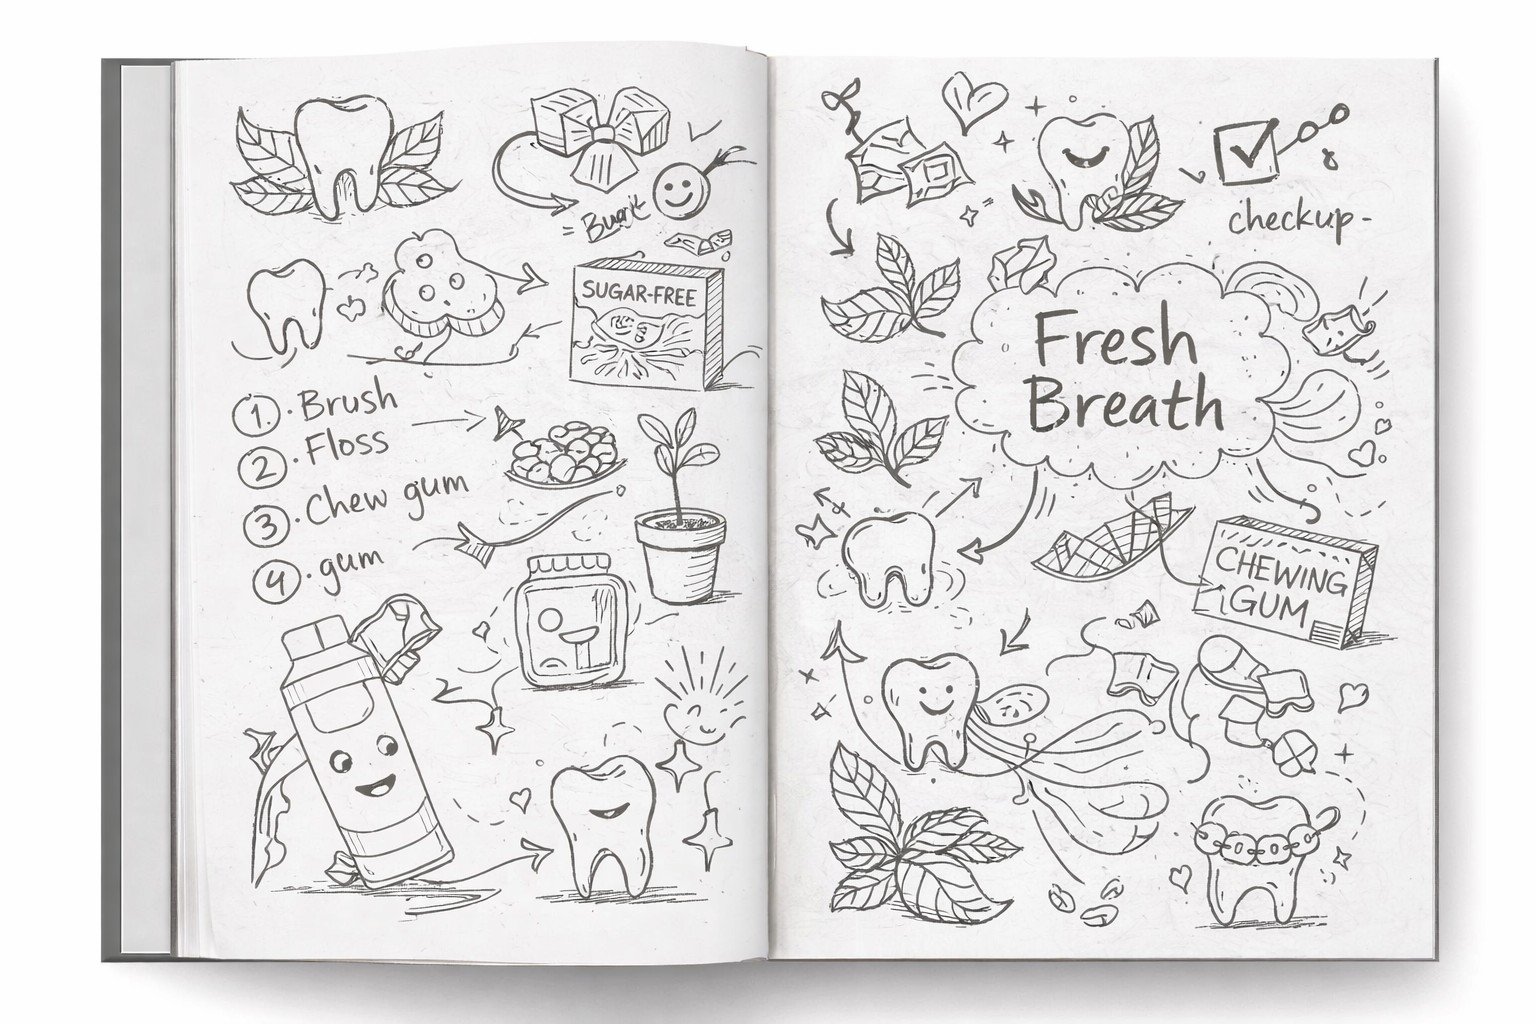 SUGAR-FREE
1. Brush
2. Floss
3. Chew gum
4. gum
checkup-
Fresh
Breath
CHEWING
GUM